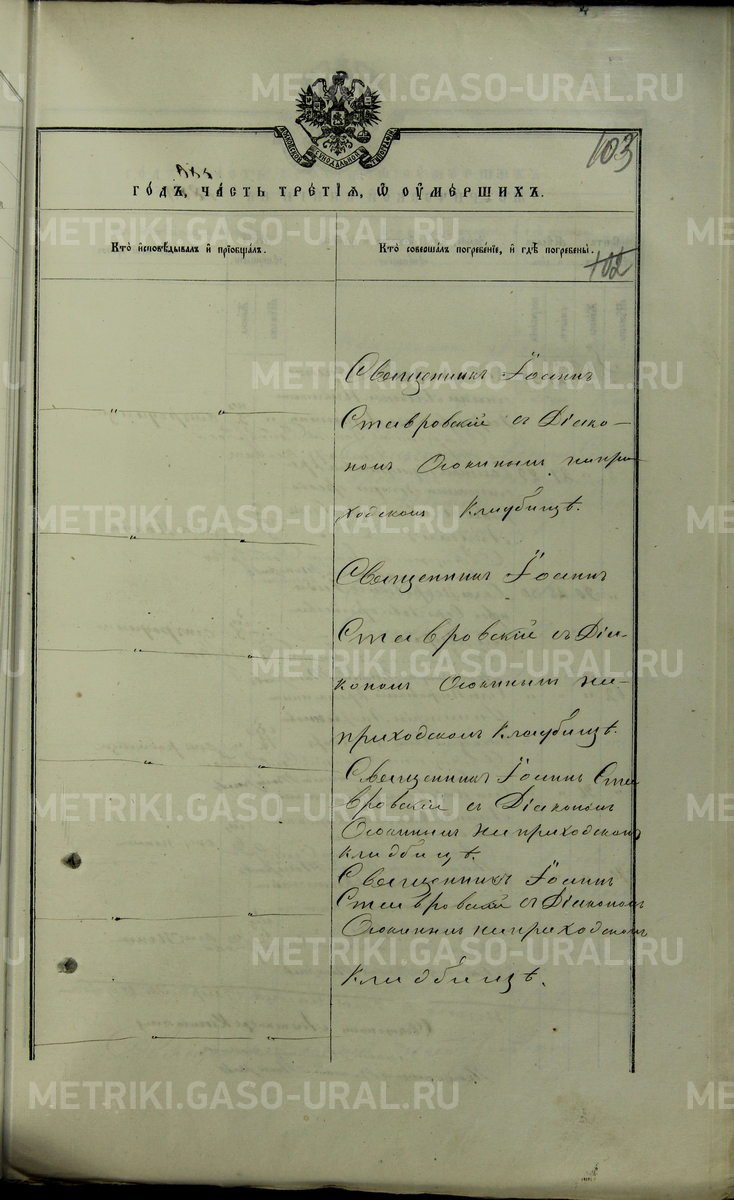 103
МОСКОВСКОЙ СѴНОДАЛЬНОЙ ТИПОГРАФІИ
го́дъ, ча́сть тре́тїѧ, ѡ҆ оу҆ме́ршихъ.
Кто̀ и҆сповѣ́дывалъ и҆ прїобща́лъ.
Кто̀ соверша́лъ погребе́нїе, и҆ гдѣ̀ погребены̀.
102
Священникъ Іоаннъ
Ставровскій съ Діако-
номъ Осокинымъ на при-
ходскомъ Кладбищѣ.
Священникъ Іоаннъ
Ставровскій съ Діа-
кономъ Осокинымъ на
приходскомъ Кладбищѣ.
Священникъ Іоаннъ Ста
вровскій съ Діакономъ
Осокинымъ на приходскомъ
кладбищѣ.
Священникъ Іоаннъ
Ставровскій съ Діакономъ
Осокинымъ на приходскомъ
Кладбищѣ.
METRIKI.GASO-URAL.RU